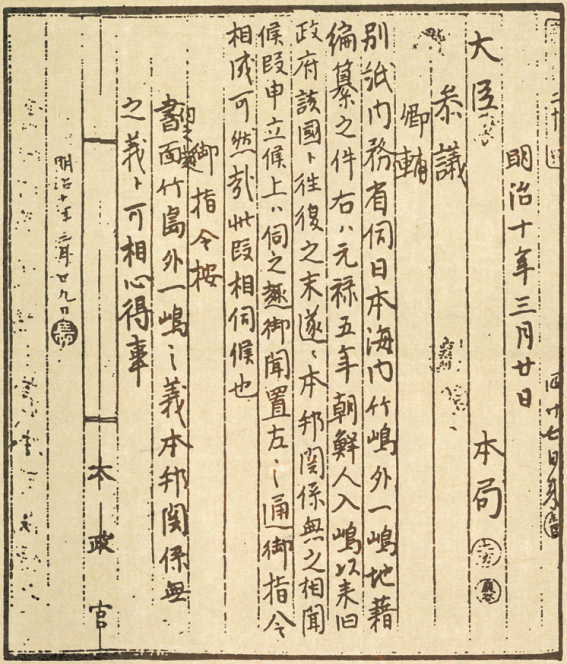 明治十年三月廿日
大臣 本局
参議
卿輔
別紙内務省伺日本海内竹嶋外一嶋地籍
編纂之件右ハ元禄五年朝鮮人入嶋以来旧
政府該国ト往復之末遂ニ本邦関係無之相聞
候段申立候上ハ伺之趣御聞置左之通御指令
相成可然哉此段相伺候也
御指令按
伺之趣
書面竹島外一嶋之義本邦関係無
之義ト可相心得事
明治十年三月廿九日
政官